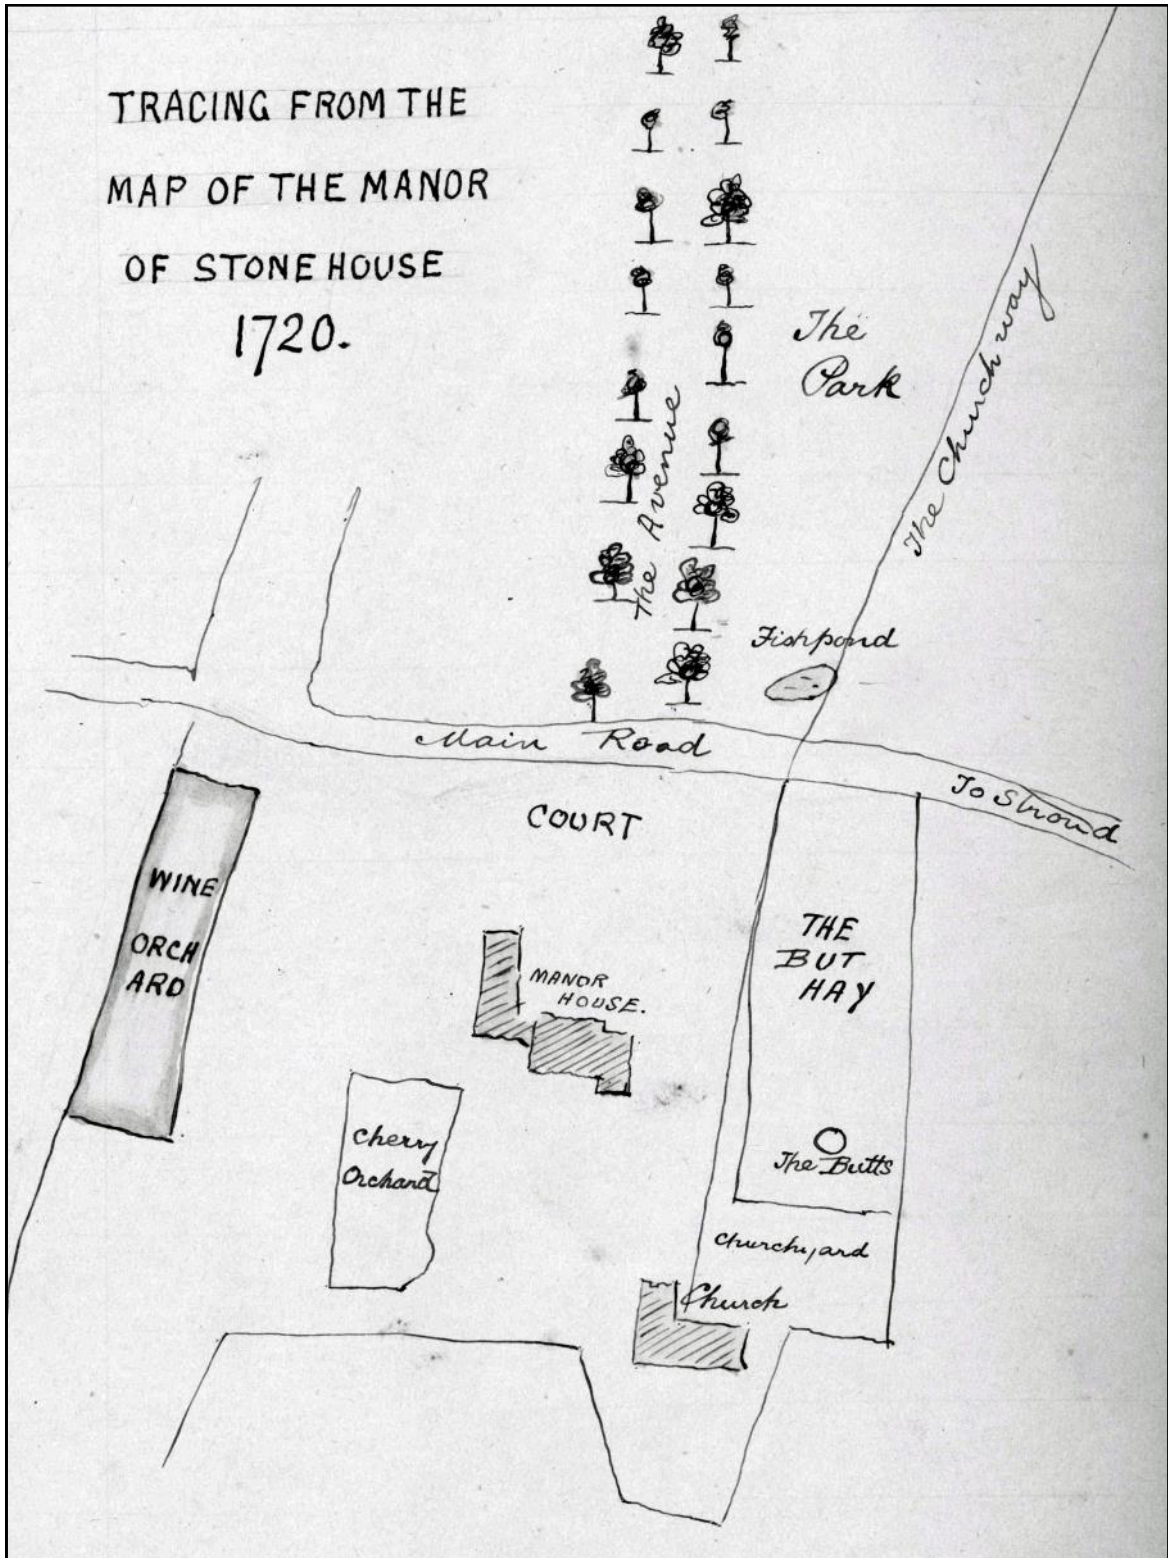 TRACING FROM THE
MAP OF THE MANOR
OF STONEHOUSE
1720.
The
Park
The Church way
The Avenue
Fishpond
Main Road
To Stroud
COURT
WINE
ORCH
ARD
MANOR
HOUSE.
THE
BUT
HAY
Cherry
Orchard
The Butts
Churchyard
Church